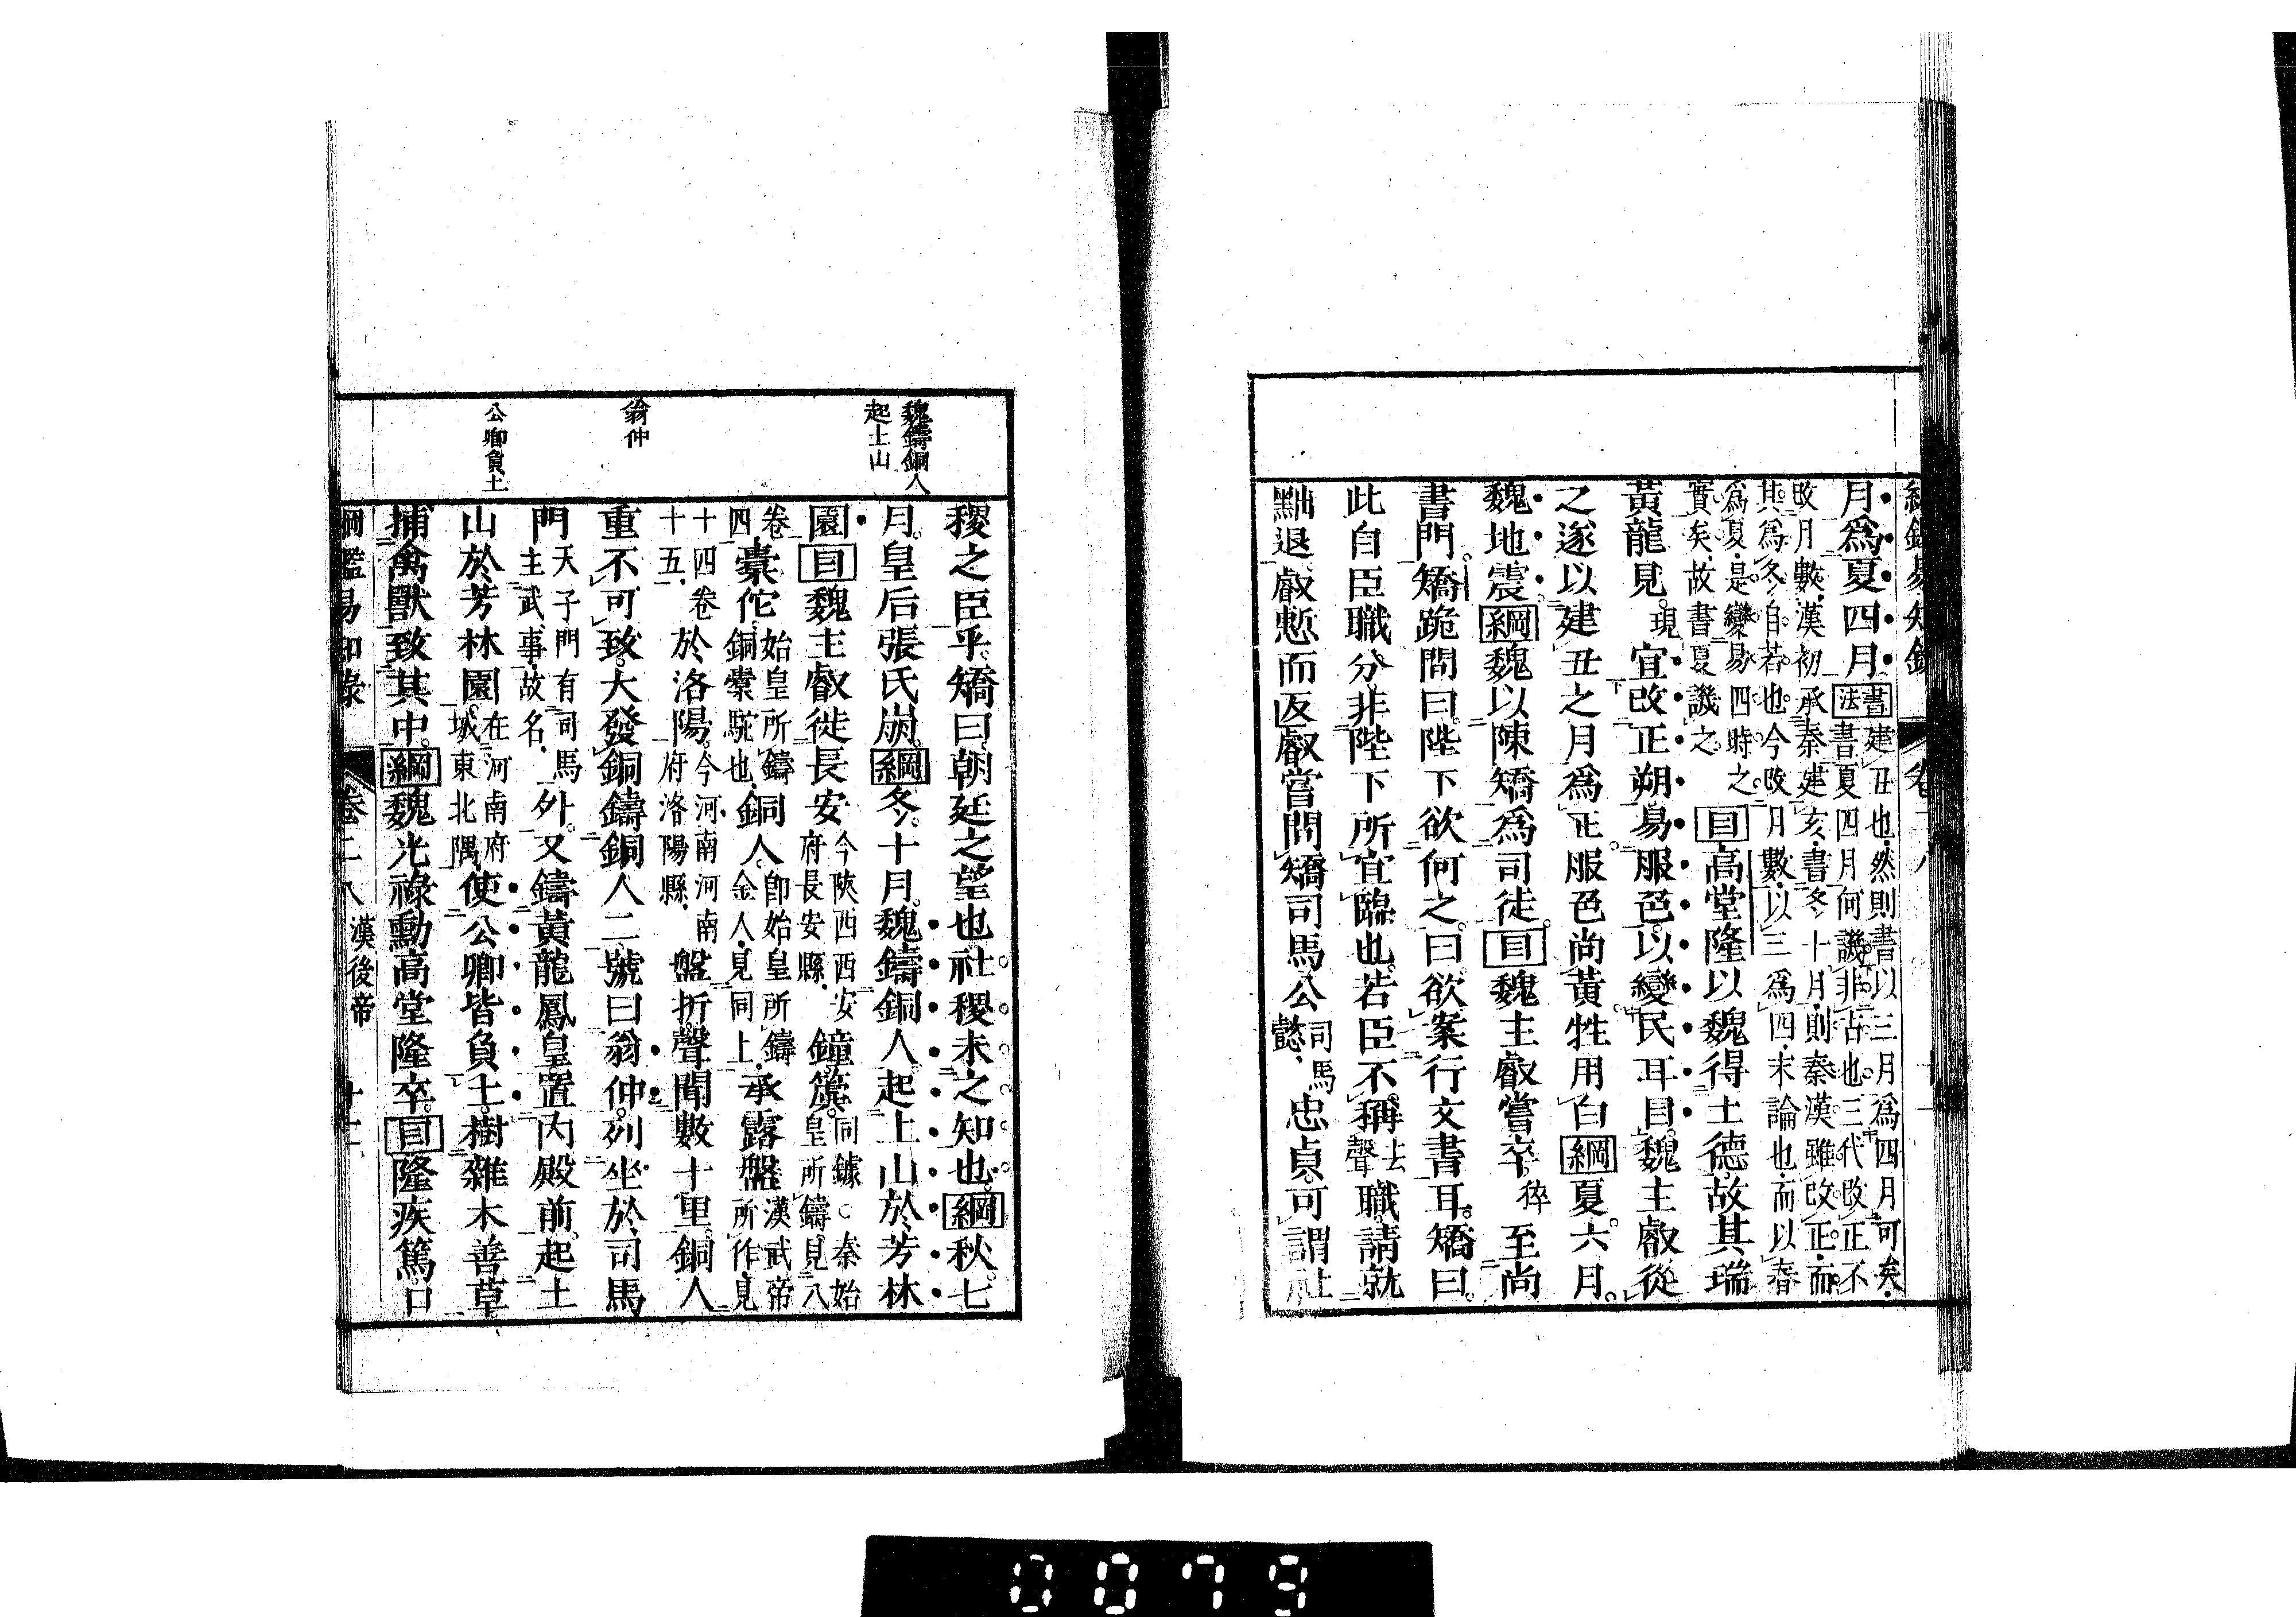 月爲夏四月書法建丑也然則書以三月爲四月可矣
書夏四月何譏非古也三代改正不
改月數漢初承秦建亥書冬十月則秦漢雖改正而
其爲冬自若也今改月數以三爲四末論也而以春
爲夏是變易四時之
實矣故書夏譏之
目高堂隆以魏得土德故其瑞
黃龍見現宜改正朔易服色以變民耳目魏主叡從
之遂以建丑之月爲正服色尚黃牲用白綱夏六月
魏地震綱魏以陳矯爲司徒目魏主叡嘗卒猝至尚
書門矯跪問曰陛下欲何之曰欲案行文書耳矯曰
此自臣職分非陛下所宜臨也若臣不稱去聲職請就
黜退叡慙而返叡嘗問矯司馬公司馬懿忠貞可謂社
魏鑄銅人
起土山
翁仲
公卿負土
稷之臣乎矯曰朝廷之望也社稷未之知也綱秋七
月皇后張氏崩綱冬十月魏鑄銅人起土山於芳林
園目魏主叡徙長安今陝西西安府長安縣鐘簴同鐻○秦始皇所鑄見八
卷四橐佗始皇所鑄銅橐駝也銅人卽始皇所鑄金人見同上承露盤漢武帝所作見
十四卷十五於洛陽今河南河南府洛陽縣盤折聲聞數十里銅人
重不可致大發銅鑄銅人二號曰翁仲列坐於司馬
門天子門有司馬主武事故名外又鑄黃龍鳳皇置內殿前起土
山於芳林園在河南府城東北隅使公卿皆負土樹雜木善草
捕禽獸致其中綱魏光祿勳高堂隆卒目隆疾篤口
綱鑑易知錄 卷二八 漢後帝 十二
0079